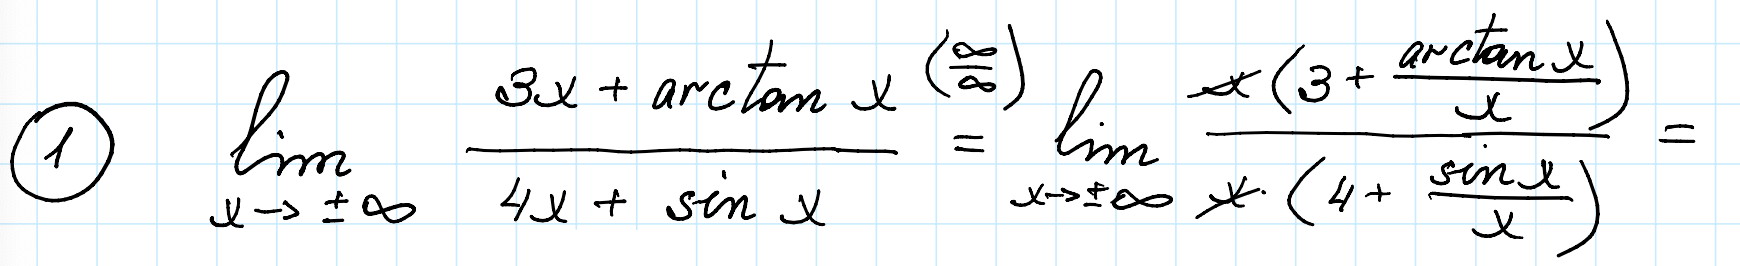 ① lim_{x→±∞} (3x + arctan x)/(4x + sin x) (∞/∞) = lim_{x→±∞} x(3 + (arctan x)/x)/(x·(4 + (sin x)/x)) =